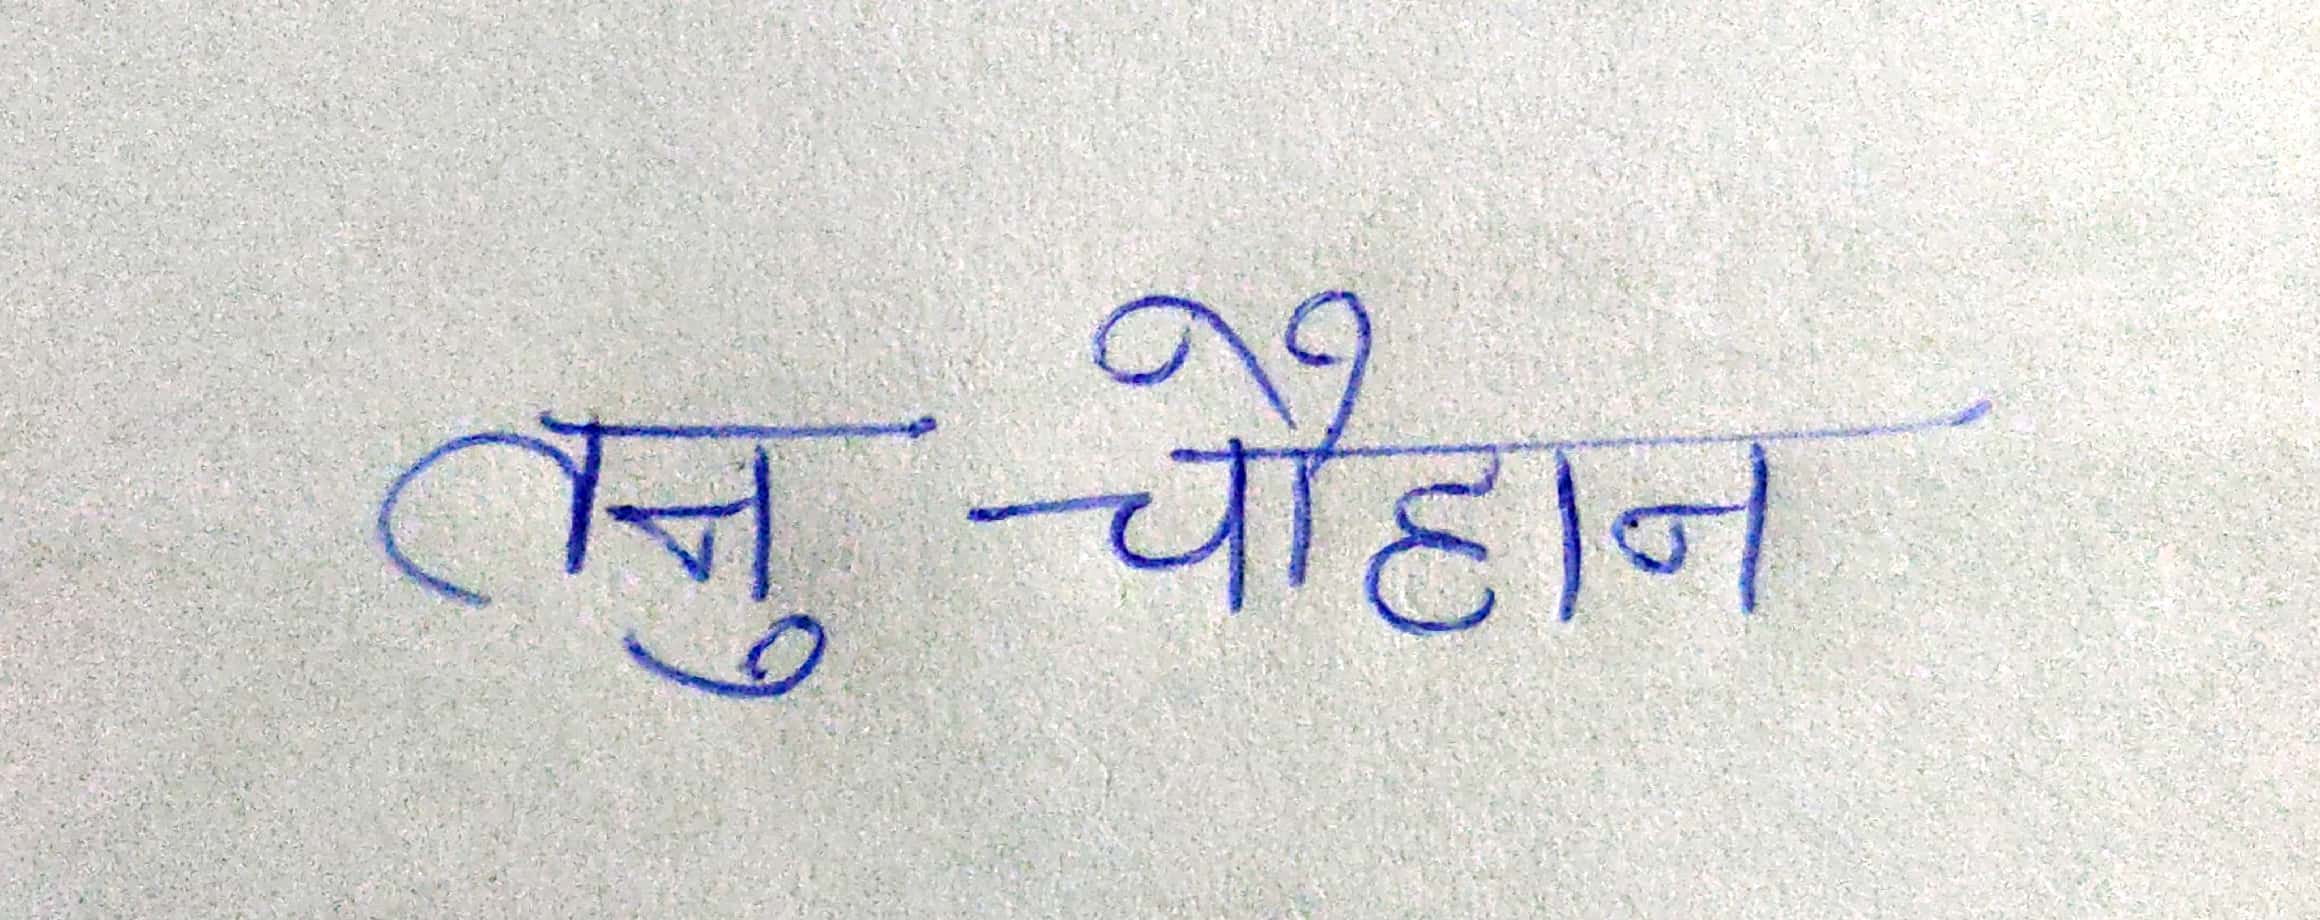 तनु चौहान